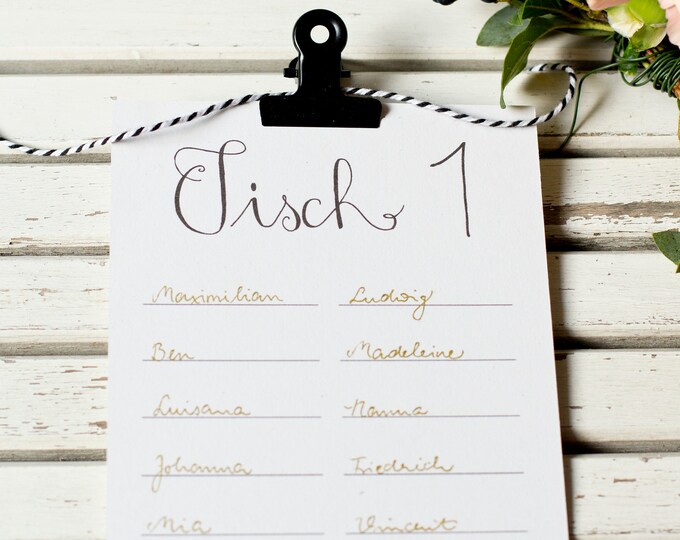 Tisch 1
Maximilian Ludwig
Ben Madeleine
Luisana Nanna
Johanna Friedrich
Mia Vincent